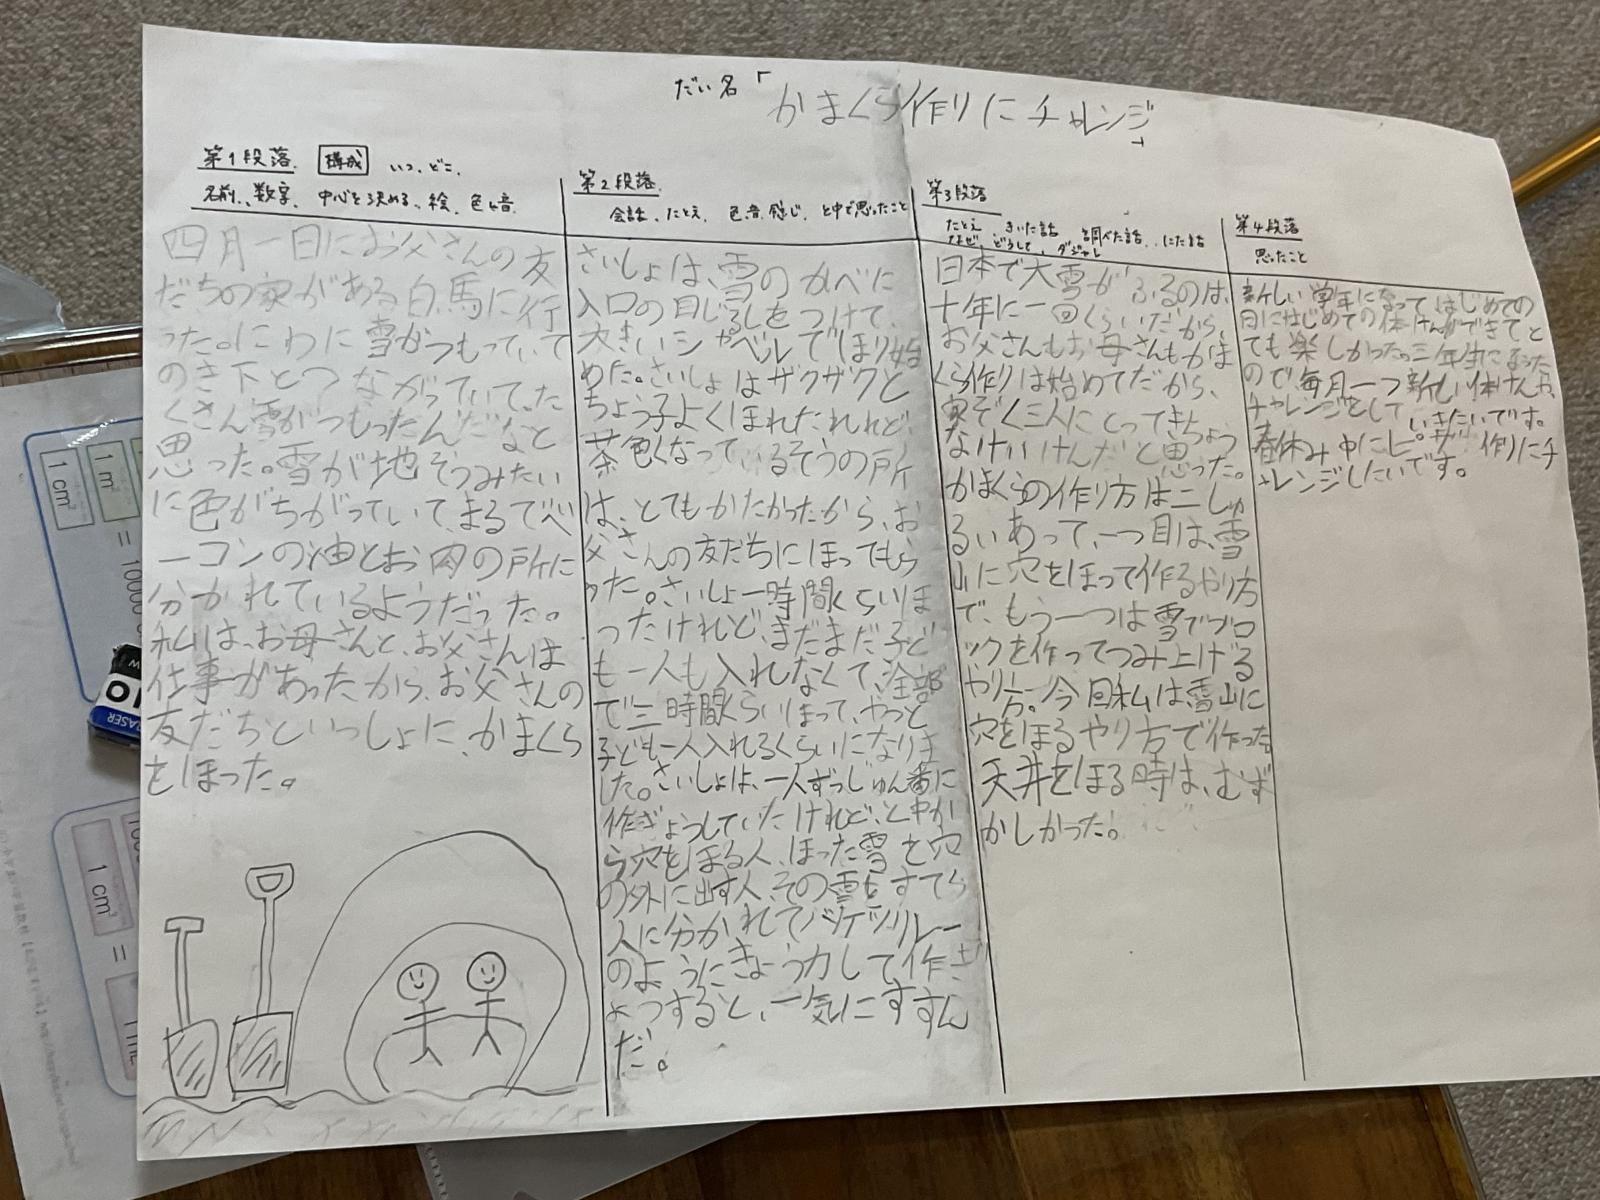 だい名「かまくら作りにチャレンジ」
第1段落 構成 いつ、どこ、
名前、数字、中心を決める、絵、色と音
四月一日にお父さんの友
だちの家がある白馬に行
った。にわに雪がつもっていて
のき下とつながっていて、た
くさん雪がつもったんだなと
思った。雪が地そうみたい
に色がちがっていてまるでベ
ーコンの油とお肉の所に
分かれているようだった。
私は、お母さんと、お父さんは
仕事があったから、お父さんの
友だちといっしょに、かまくら
をほった。
第2段落
会話、たとえ、色、音、感じ、と中で思ったこと
さいしょは、雪のかべに
入口の目じるしをつけて、
大きいシャベルでほり始
めた。さいしょはザクザクと
ちょう子よくほれたれれど、
茶色くなっているそうの所
は、とてもかたかったから、お
父さんの友だちにほってもら
った。さいしょ一時間くらいほ
ったけれど、まだまだ子ど
も一人も入れなくて、全部
で三時間くらいほって、やっと
子ども一人入れるくらいになりま
した。さいしょは、一人ずつじゅん番に
作ぎょうしていたけれど、と中か
ら穴をほる人、ほった雪を穴
の外に出す人、その雪をすてら
人に分かれてバケツリレー
のようにきょう力して、作ぎ
ょつすると、一気にすすん
だ。
第3段落
たとえ きいた話 調べた話、にた話
なぜ、どうして、ダジャレ
日本で大雪がふるのは、
十年に一回くらいだから、
お父さんもお母さんもかま
くら作りは始めてだから、
家ぞく三人にとってきちょう
なけいけんだと思った。
かまくらの作り方は二しゅ
るいあって、一つ目は、雪
山に穴をほって作るやり方
で、もう一つは雪でブロ
ックを作ってつみ上げる
やり方。今回私は雪山に
穴をほるやり方で作った
天井をほる時は、むず
かしかった。
第4段落
思ったこと
新しい学年になってはじめての
日にはじめての体けんができてと
ても楽しかった。三年生になった
ので毎月一つ新しい体けんお
チャレンジとしていきたいです。
春休み中にピザ作りにチ
ャレンジしたいです。
1 cm²
1 m²
= 10000
1 cm³
=